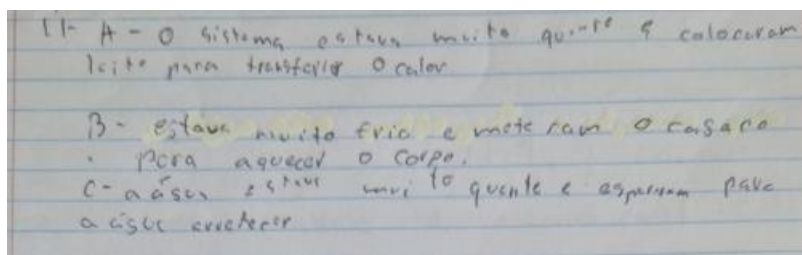 11- A - O sistema estava muito quente e colocaram
leite para transferir o calor
B- estava muito frio e meteram o casaco
para aquecer o corpo.
C- a água estava muito quente e esperaram para
a água arrefecer